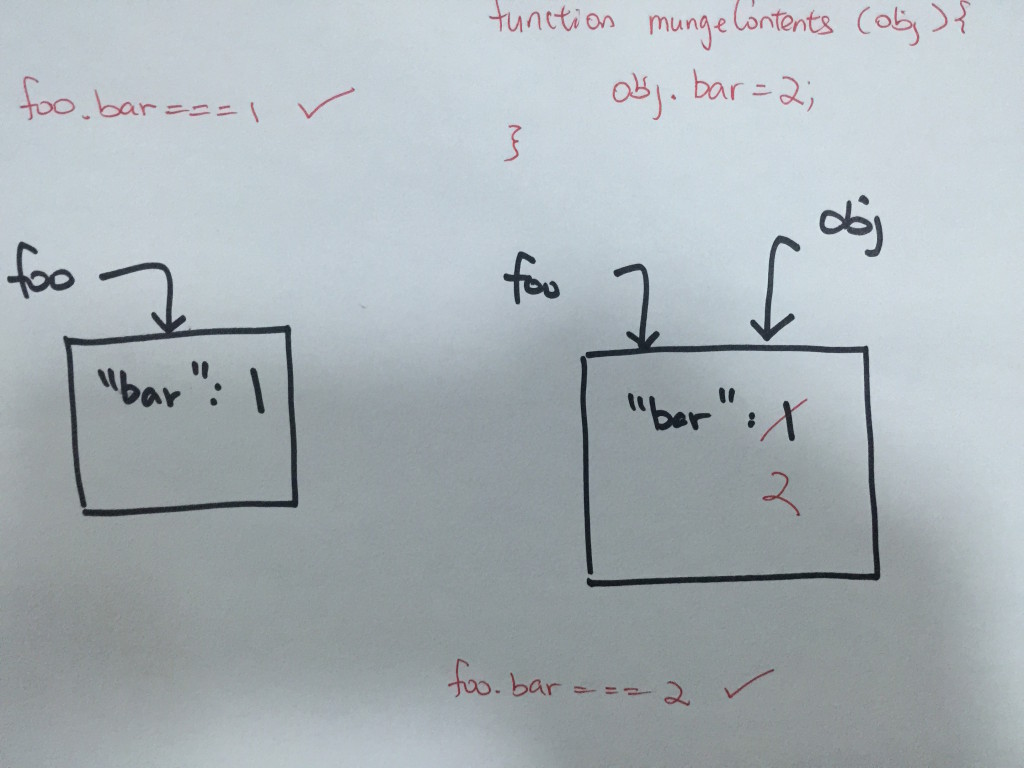 function mungeContents (obj) {
foo.bar === 1 ✓
obj.bar = 2;
}
foo
"bar": 1
foo
obj
"bar": 1
2
foo.bar === 2 ✓